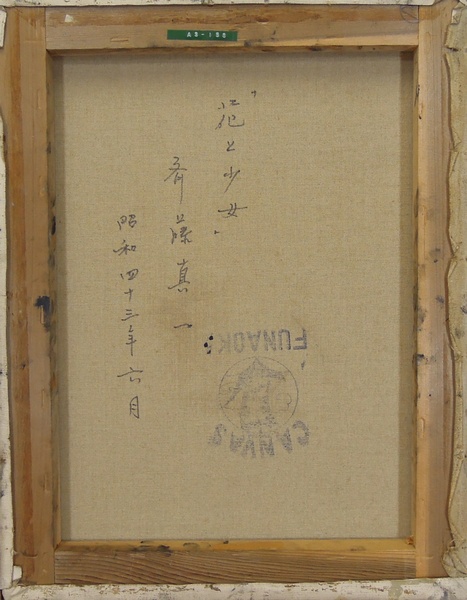 AS-155
"花と少女"
斉藤真一
昭和四十三年六月
FUNAOKA
CANVAS